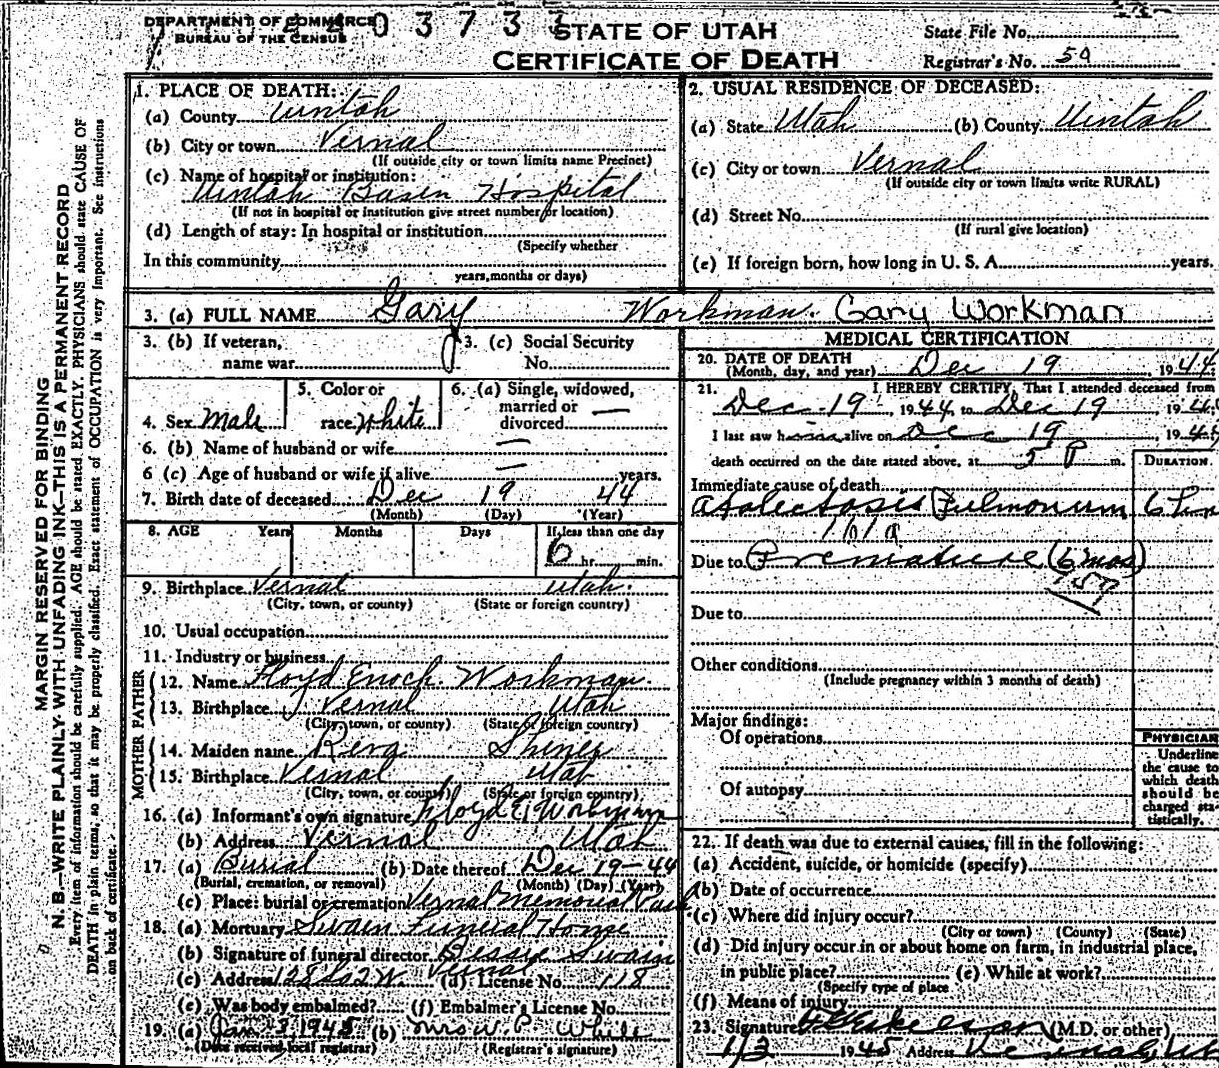 DEPARTMENT OF COMMERCE
BUREAU OF THE CENSUS
STATE OF UTAH
CERTIFICATE OF DEATH
State File No.
Registrar's No. 59
MARGIN RESERVED FOR BINDING
N. B.—WRITE PLAINLY WITH UNFADING INK—THIS IS A PERMANENT RECORD
Every item of information should be carefully supplied. AGE should be stated EXACTLY. PHYSICIANS should state CAUSE OF
DEATH in plain terms, so that it may be properly classified. Exact statement of OCCUPATION is very important. See instructions
on back of certificate.
1. PLACE OF DEATH:
(a) County Uintah
(b) City or town Vernal
(If outside city or town limits name Precinct)
(c) Name of hospital or institution:
Uintah Basin Hospital
(If not in hospital or institution give street number or location)
(d) Length of stay: In hospital or institution
(Specify whether
In this community
years, months or days)
2. USUAL RESIDENCE OF DECEASED:
(a) State Utah (b) County Uintah
(c) City or town Vernal
(If outside city or town limits write RURAL)
(d) Street No.
(If rural give location)
(e) If foreign born, how long in U. S. A. years.
3. (a) FULL NAME Gary Workman. Gary Workman
3. (b) If veteran,
name war
3. (c) Social Security
No.
4. Sex Male
5. Color or
race White
6. (a) Single, widowed,
married or
divorced —
6. (b) Name of husband or wife —
6 (c) Age of husband or wife if alive — years.
7. Birth date of deceased Dec 19 44
(Month) (Day) (Year)
8. AGE Years Months Days If less than one day
6 hr. min.
9. Birthplace Vernal Utah.
(City, town, or county) (State or foreign country)
10. Usual occupation
11. Industry or business
FATHER
12. Name Floyd Enoch Workman.
13. Birthplace Vernal Utah
(City, town, or county) (State or foreign country)
MOTHER
14. Maiden name Reva Shiner
15. Birthplace Vernal Utah
(City, town, or county) (State or foreign country)
16. (a) Informant's own signature Floyd E. Workman
(b) Address Vernal Utah
17. (a) Burial (b) Date thereof Dec 19-44
(Burial, cremation, or removal) (Month) (Day) (Year)
(c) Place: burial or cremation Vernal Memorial Park
18. (a) Mortuary Swain Funeral Home
(b) Signature of funeral director Bessie Swain
(c) Address Vernal (d) License No. 118
(e) Was body embalmed? (f) Embalmer's License No.
19. (a) Jan 3 1945 (b) Mrs W. P. White
(Date received local registrar) (Registrar's signature)
MEDICAL CERTIFICATION
20. DATE OF DEATH
(Month, day, and year) Dec 19, 1944
21. I HEREBY CERTIFY, That I attended deceased from
Dec 19, 1944, to Dec 19, 194
I last saw him alive on Dec 19, 194
death occurred on the date stated above, at 5 P m.
DURATION
Immediate cause of death
Atalectasis Pulmonum 6
161a
Due to Premature (6 mos)
159
Due to
Other conditions
(Include pregnancy within 3 months of death)
Major findings:
Of operations
Of autopsy
PHYSICIAN
Underline
the cause to
which death
should be
charged sta-
tistically.
22. If death was due to external causes, fill in the following:
(a) Accident, suicide, or homicide (specify)
(b) Date of occurrence
(c) Where did injury occur?
(City or town) (County) (State)
(d) Did injury occur in or about home on farm, in industrial place,
in public place? (e) While at work?
(Specify type of place
(f) Means of injury
23. Signature (M.D. or other)
1/3 1945 Address Vernal, Ut